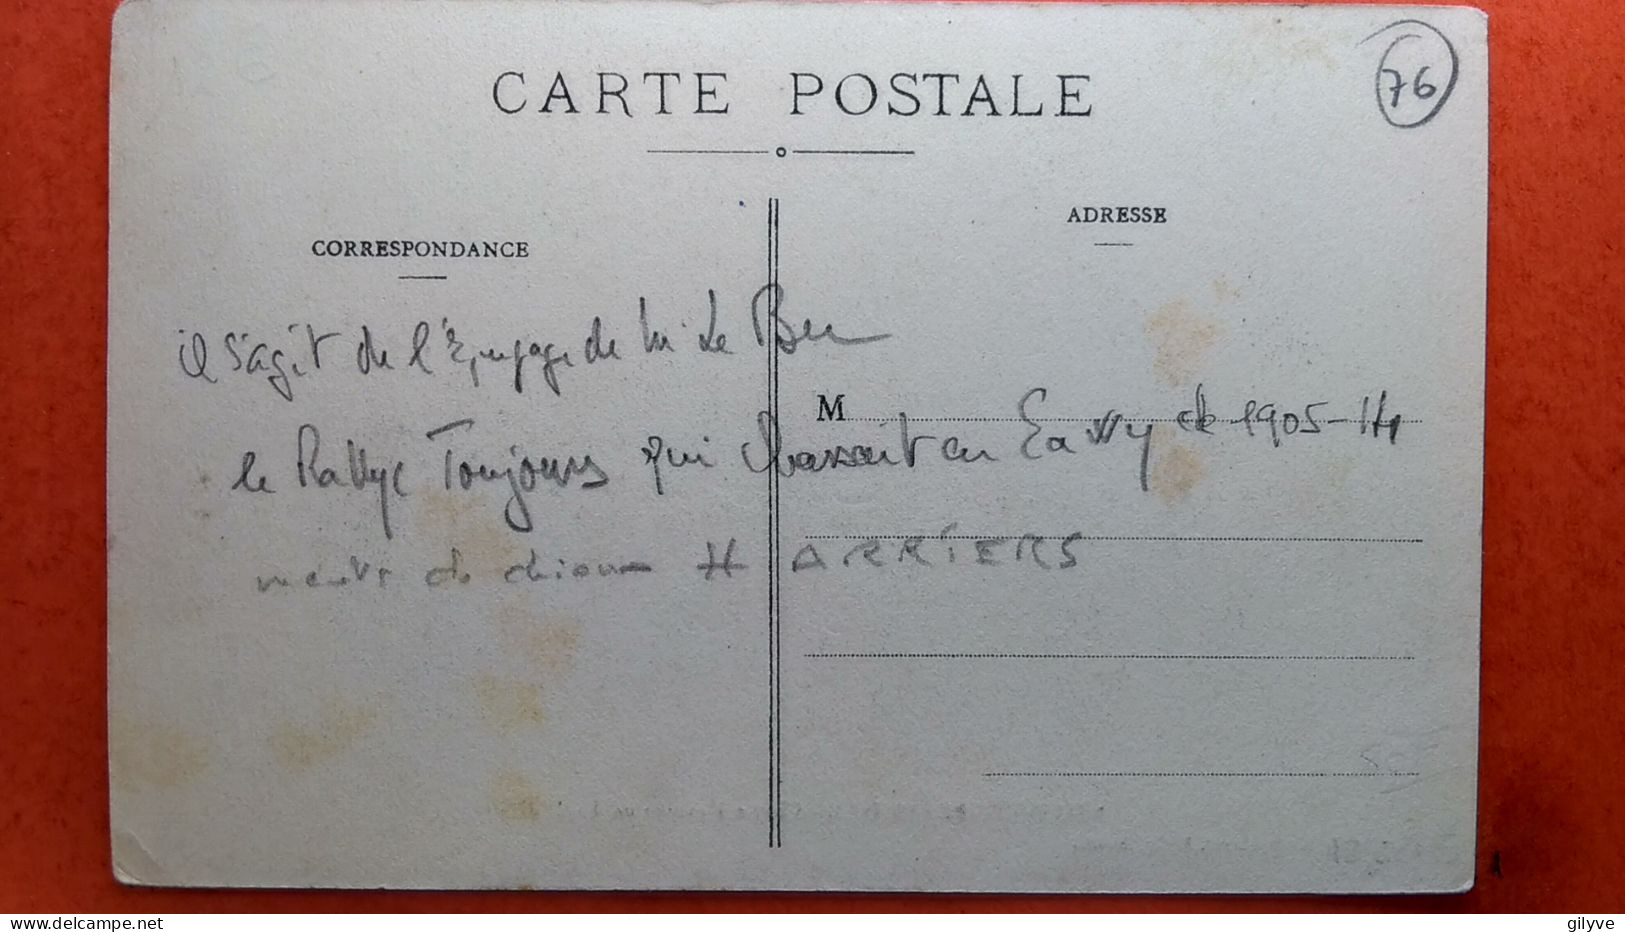 CARTE POSTALE
76
CORRESPONDANCE
ADRESSE
il s'agit de l'Equipage de Mr Le Beu
M
le Rallye Toujours qui chassait en Eawy de 1905-14
meute de chiens H ARRIERS
gilyve